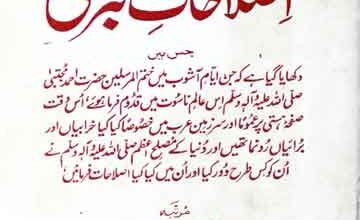 اصلاحاتِ کبریٰ
جس میں
دکھایا گیا ہے کہ جن ایّامِ آشوب میں ختم المرسلین حضرت احمدِ مجتبیٰ
صلی اللہ علیہ وآلہ وسلم اس عالمِ ناسوت میں قدوم فرما ہوئے، اُس وقت
صفحۂ ہستی پر عموماً اور سرزمینِ عرب میں خصوصاً کیا کیا خرابیاں اور
بُرائیاں رونما تھیں اور دُنیا کے مصلحِ اعظم صلی اللہ علیہ وآلہ وسلم نے
اُن کو کِس طرح دُور کیا اور اُن میں کیا کیا اصلاحات فرمائیں
مرتبہ